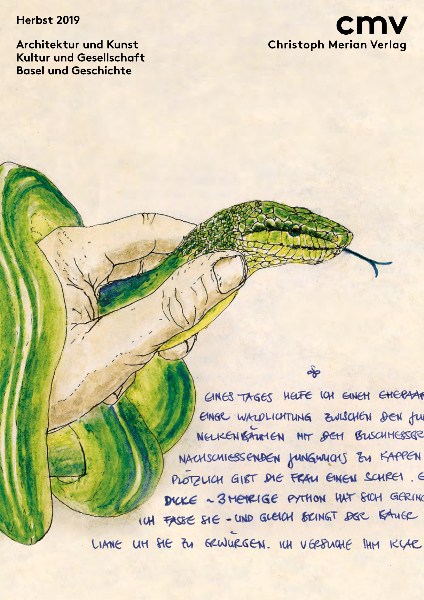 Herbst 2019
Architektur und Kunst
Kultur und Gesellschaft
Basel und Geschichte
cmv
Christoph Merian Verlag
EINES TAGES HELFE ICH EINEM EHEPAAR
EINER WALDLICHTUNG ZWISCHEN DEN JU
NELKENBÄUMEN MIT DEM BUSCHMESSER
NACHSCHIESSENDEN JUNGWUCHS ZU KAPPEN
PLÖTZLICH GIBT DIE FRAU EINEN SCHREI. E
DICKE ~3METRIGE PYTHON HAT SICH GERING
ICH FASSE SIE - UND GLEICH BRINGT DER BAUER
LIANE UM SIE ZU ERWÜRGEN. ICH VERSUCHE IHM KLAR